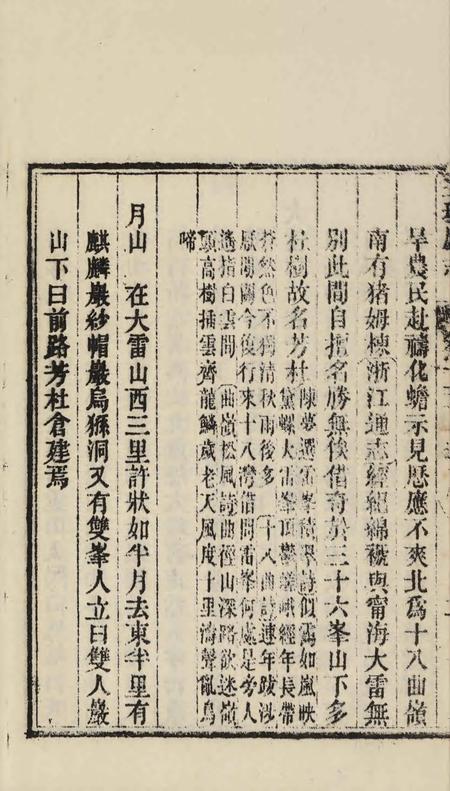 旱農民赴禱化蟾示見歷應不爽北為十八曲嶺
南有猪姆棟浙江通志經紀綿褫與甯海大雷無
別此間自擅名勝無俟借奇於三十六峯山下多
杜樹故名芳杜陳夢選雷峯積翠詩似靄如嵐映
黛螺大雷峯頂鬱嵯峨經年長帶
蒼然色不獨清秋雨後多十八曲詩連年跋涉
厭間關今復行來十八灣借問雷峯何處是旁人
遙指白雲間曲嶺松風詩曲徑山深路欲迷嶺
頭高樹插雲齊龍鱗歲老天風度十里濤聲亂鳥
啼
月山 在大雷山西三里許狀如半月去東半里有
麒麟巖紗帽巖烏猻洞又有雙峯人立曰雙人巖
山下曰前路芳杜倉建焉